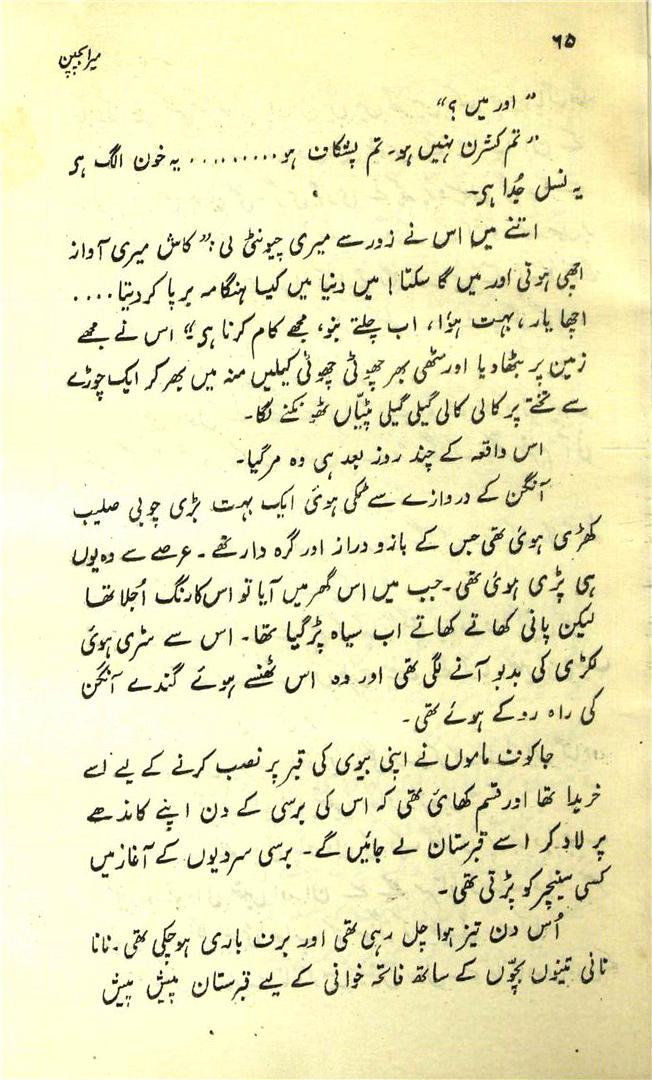 ۶۵
میرا بچپن
”اور میں؟“
”تم کشرن نہیں ہو۔ تم پشکاف ہو ......... یہ خون الگ ہی
یہ نسل جُدا ہی۔
اتنے میں اس نے زور سے میری چیونٹی لی:” کاش میری آواز
اچھی ہوتی اور میں گا سکتا! میں دنیا میں کیسا ہنگامہ برپا کر دیتا....
اچھا یار، بہت ہؤا، اب چلتے بنو، مجھے کام کرنا ہی“ اس نے مجھے
زمین پر بٹھا دیا اور مٹھی بھر چھوٹی چھوٹی کیلیں منہ میں بھر کر ایک چوڑے
سے تختے پر کالی کالی گیلی گیلی پٹیاں ٹھونکنے لگا۔
اس واقعہ کے چند روز بعد ہی وہ مر گیا۔
آنگن کے دروازے سے ٹکی ہوئ ایک بہت بڑی چوبی صلیب
کھڑی ہوئ تھی جس کے بازو دراز اور گرہ دار تھے۔ عرصے سے وہ یوں
ہی پڑی ہوئ تھی۔ جب میں اس گھر میں آیا تو اس کا رنگ اُجلا تھا
لیکن پانی کھاتے کھاتے اب سیاہ پڑ گیا تھا۔ اس سے سڑی ہوئ
لکڑی کی بدبو آنے لگی تھی اور وہ اس ٹھنسے ہوئے گندے آنگن
کی راہ روکے ہوئے تھی۔
جاکوف ماموں نے اپنی بیوی کی قبر پر نصب کرنے کے لیے اسے
خریدا تھا اور قسم کھائ تھی کہ اس کی برسی کے دن اپنے کاندھے
پر لاد کر اسے قبرستان لے جائیں گے۔ برسی سردیوں کے آغاز میں
کسی سنیچر کو پڑتی تھی۔
اُس دن تیز ہوا چل رہی تھی اور برف باری ہو چکی تھی۔ نانا
نانی تینوں بچّوں کے ساتھ فاتحہ خوانی کے لیے قبرستان پیش پیش